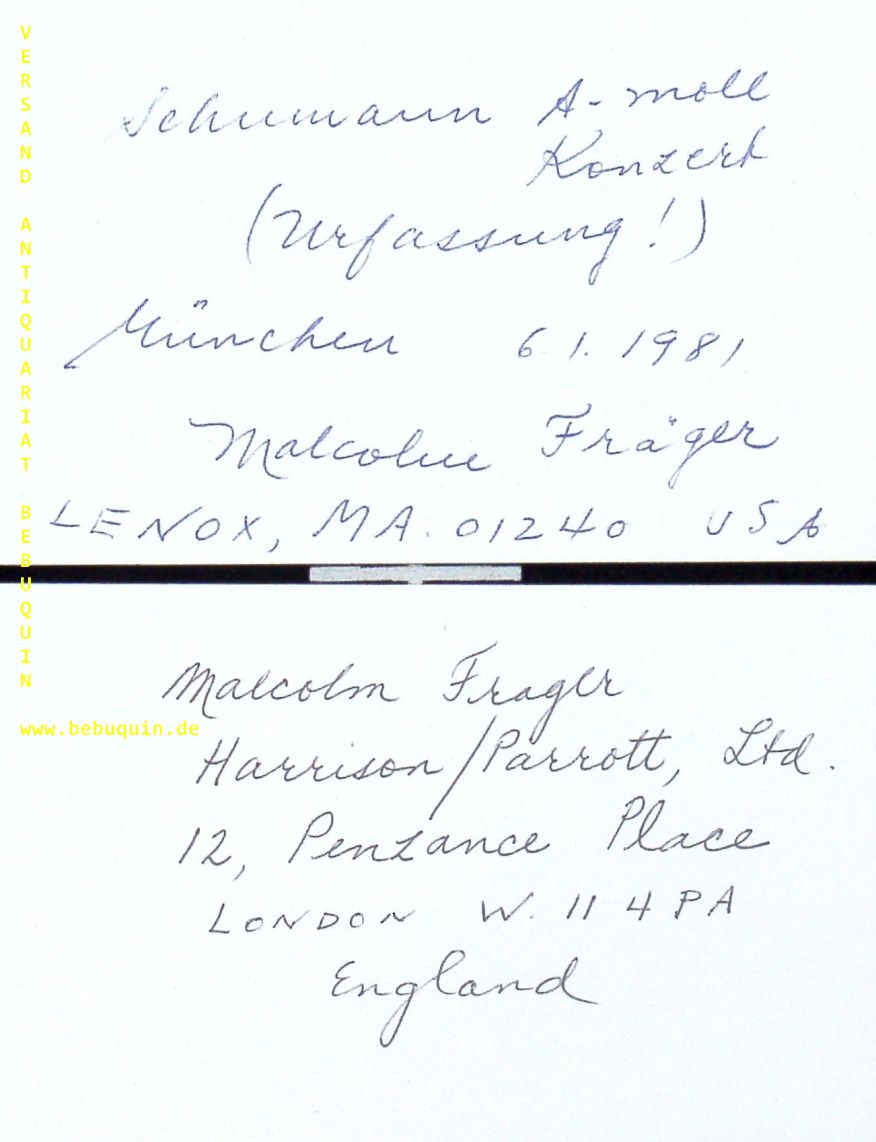 Schumann A-moll
Konzert
(Urfassung!)
München 6 1. 1981
Malcolm Fräger
LENOX, MA. 01240 USA
Malcolm Frager
Harrison/Parrott, Ltd.
12, Penzance Place
LONDON W. 11 4PA
England
VERSAND ANTIQUARIAT BEBUQUIN
www.bebuquin.de